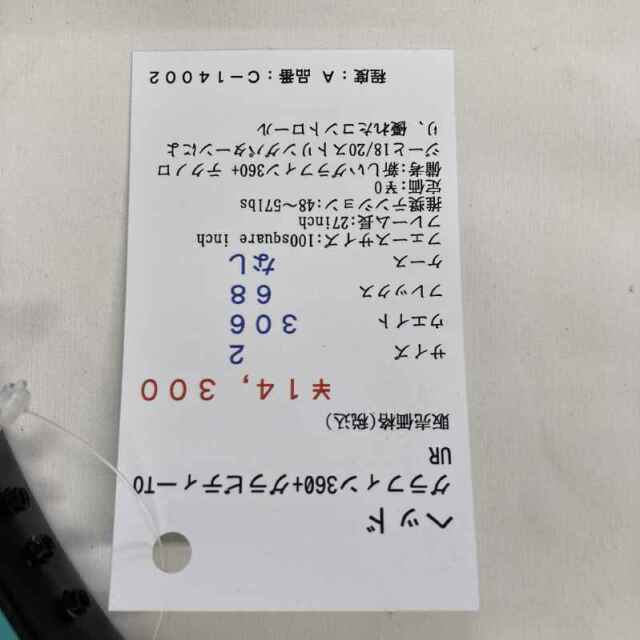 ヘッド
グラフィン360+グラビティーTO
UR
販売価格(税込)
¥14,300
サイズ 2
ウエイト 306
フレックス 68
ケース なし
フェースサイズ:100square inch
フレーム長:27inch
推奨テンション:48~57lbs
定価:¥0
備考:新しいグラフィン360+ テクノロ
ジーと18/20ストリングパターンによ
り、優れたコントロール
程度:A 品番:C-14002